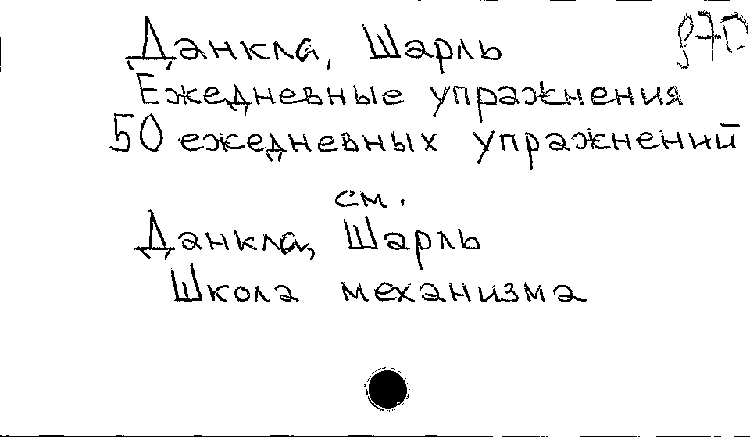 Данкла, Шарль
Ежедневные упражнения
50 ежедневных упражнений
см.
Данкла, Шарль
Школа механизма